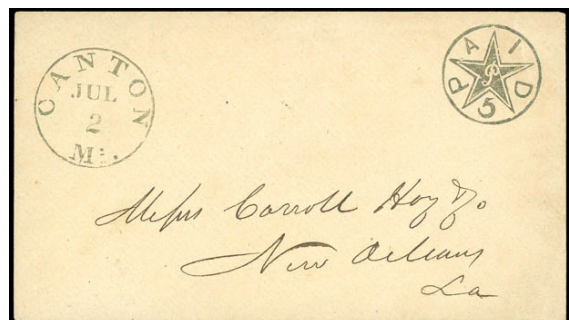 CANTON
JUL
2
Mi.
PAID
P
5
Messrs Carroll Hoy & Co
New Orleans
La